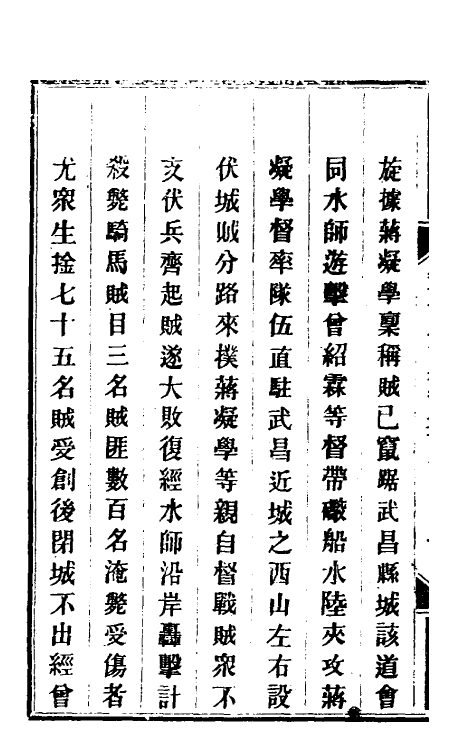 旋據蔣凝學稟稱賊已竄踞武昌縣城該道會
同水師遊擊曾紹霖等督帶礮船水陸夾攻蔣
凝學督率隊伍直駐武昌近城之西山左右設
伏城賊分路來撲蔣凝學等親自督戰賊衆不
支伏兵齊起賊遂大敗復經水師沿岸轟擊計
殺斃騎馬賊目三名賊匪數百名淹斃受傷者
尤衆生擒七十五名賊受創後閉城不出經曾